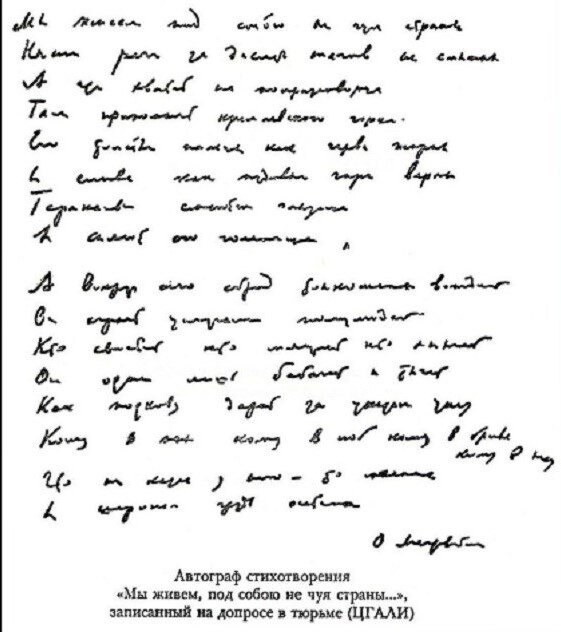 Мы живем под собою не чуя страны
Наши речи за десять шагов не слышны
А где хватит на полразговорца
Там припомнят кремлевского горца.
Его толстые пальцы как черви жирны
А слова как пудовые гири верны
Тараканьи смеются глазища
И сияют его голенища
А вокруг его сброд тонкошеих вождей
Он играет услугами полулюдей
Кто свистит кто мяучит кто хнычет
Он один лишь бабачит и тычет
Как подкову дарит за указом указ
Кому в пах кому в лоб кому в бровь
кому в глаз
Что ни казнь у него – то малина
И широкая грудь осетина
О Мандельштам
Автограф стихотворения
«Мы живем, под собою не чуя страны...»,
записанный на допросе в тюрьме (ЦГАЛИ)